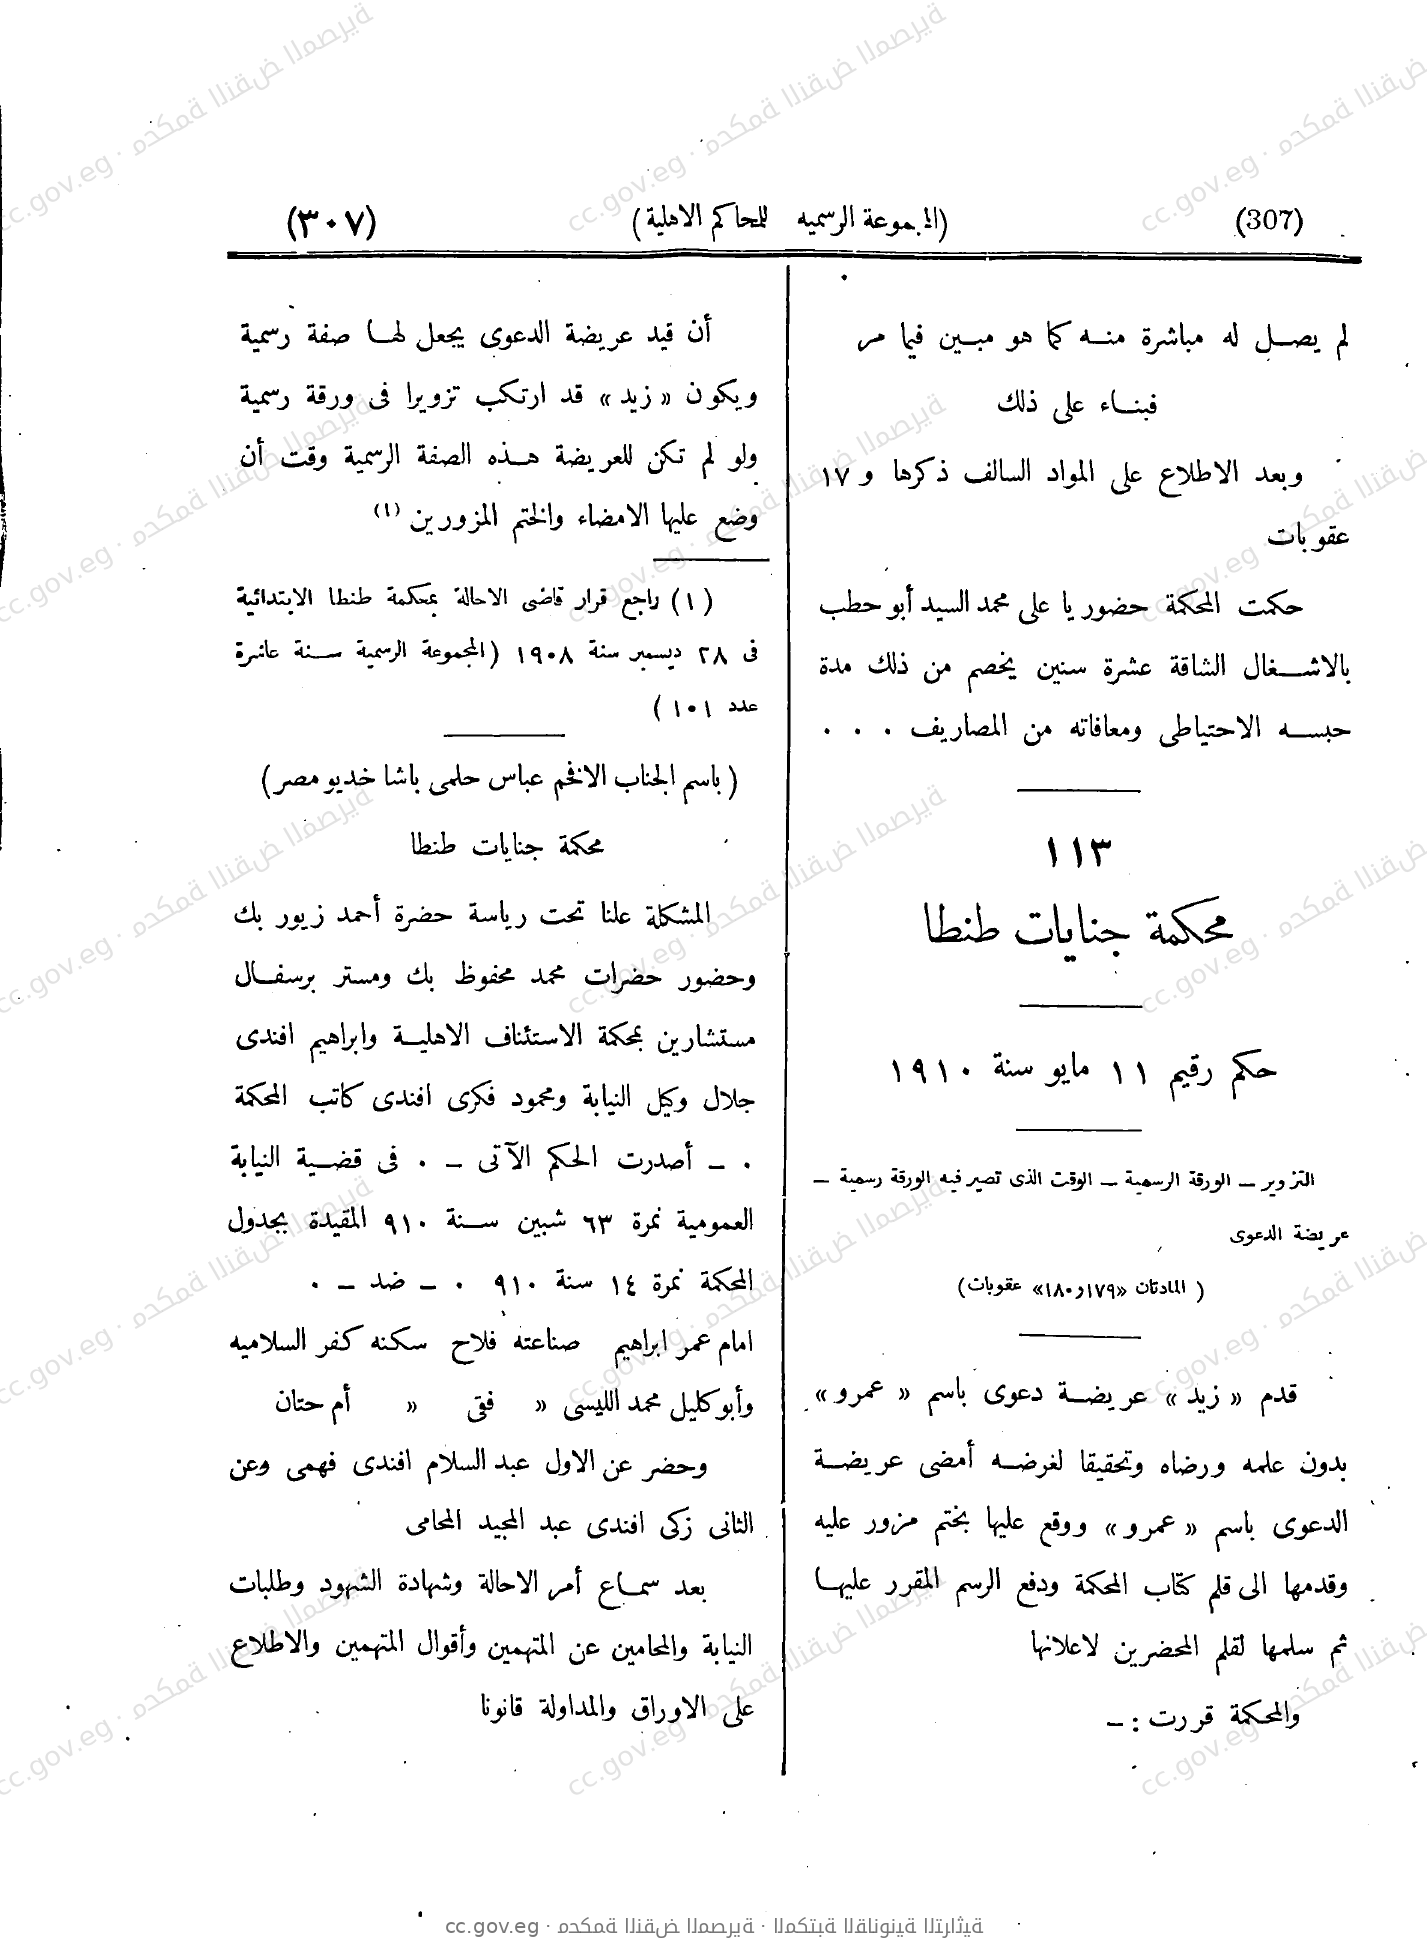 (307) (المجموعة الرسميه للمحاكم الاهلية) (٣٠٧)
لم يصـل له مباشرة منـه كما هو مبـين فيما مر
فبنـاء على ذلك
وبعد الاطلاع على المواد السالف ذكرها و ١٧
عقوبات
حكمت المحكمة حضوريا على محمد السيد أبو حطب
بالاشـغال الشاقة عشرة سنين يخصم من ذلك مدة
حبسـه الاحتياطى ومعافاته من المصاريف . . .
١١٣
محكمة جنايات طنطا
حكم رقيم ١١ مايو سنة ١٩١٠
التزوير ــ الورقة الرسمية ــ الوقت الذى تصير فيه الورقة رسمية ــ
عريضة الدعوى
( المادتان «١٧٩و١٨٠» عقوبات)
قدم « زيد » عريضـة دعوى باسم « عمرو »
بدون علمه ورضاه وتحقيقا لغرضـه أمضى عريضـة
الدعوى باسم « عمرو » ووقع عليها بختم مزور عليه
وقدمها الى قلم كتاب المحكمة ودفع الرسم المقرر عليهـا
ثم سلمها لقلم المحضرين لاعلانها
والمحكمة قررت : ــ
أن قيد عريضة الدعوى يجعل لهـا صفة رسمية
ويكون « زيد » قد ارتكب تزويرا فى ورقة رسمية
ولو لم تكن للعريضة هـذه الصفة الرسمية وقت أن
وضع عليها الامضاء والختم المزورين (١)
(١) راجع قرار قاضى الاحالة بمحكمة طنطا الابتدائية
فى ٢٨ ديسمبر سنة ١٩٠٨ (المجموعة الرسمية سـنة عاشرة
عدد ١٠١ )
( باسم الجناب الافخم عباس حلمى باشا خديو مصر )
محكمة جنايات طنطا
المشكلة علنا تحت رياسة حضرة أحمد زيور بك
وحضور حضرات محمد محفوظ بك ومستر برسفـال
مستشارين بمحكمة الاستئناف الاهليـة وابراهيم افندى
جلال وكيل النيابة ومحمود فكرى افندى كاتب المحكمة
٠ ــ أصدرت الحكم الآتى ــ ٠ فى قضـية النيابة
العمومية نمرة ٦٣ شبين سـنة ٩١٠ المقيدة بجدول
المحكمة نمرة ١٤ سنة ٩١٠ ٠ ــ ضد ــ ٠
امام عمر ابراهيم صناعته فلاح سكنه كفر السلاميه
وأبو كليل محمد الليسى « فقى « أم حتان
وحضر عن الاول عبد السلام افندى فهمى وعن
الثانى زكى افندى عبد المجيد المحامى
بعد سمـاع أمر الاحالة وشهادة الشهود وطلبات
النيابة والمحامين عن المتهمين وأقوال المتهمين والاطلاع
على الاوراق والمداولة قانونا
cc.gov.eg · محكمة النقض المصرية · المكتبة القانونية التراثية